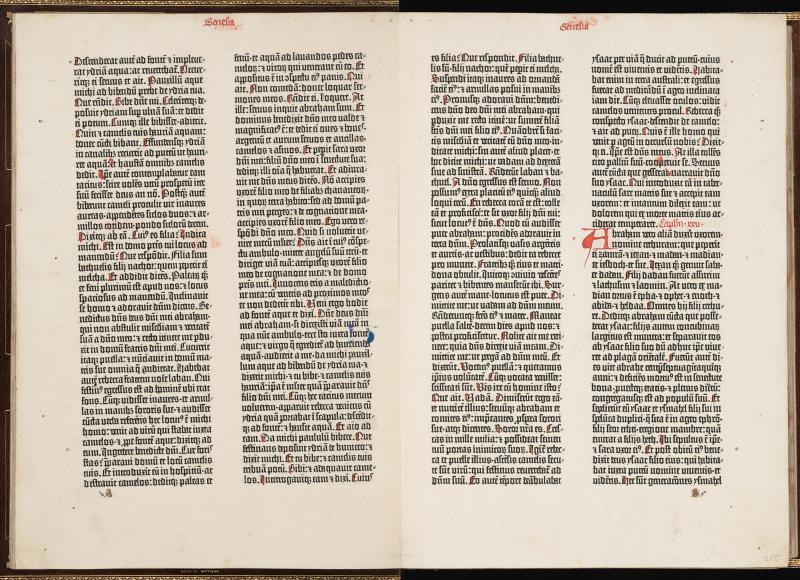 Genesis
Descenderat autē ad fontē ⁊ impleue-
rat ydriā aqua: ac revertebat̄. Occur-
ritq; ei servus et ait. Pauxillū aque
michi ad bibendū prebe de ydria tua.
Que rn̄dit. Bibe dn̄e mi. Celeriterq; de-
posuit ydriam sup ulnā suā: ⁊ dedit
ei potum. Cumq; ille bibisset: adiecit.
Quin ⁊ camelis tuis hauriā aquam:
donec cūcti bibant. Effundensq; ydriā
in canalib; recurrit ad puteū ut hauri-
ret aquā: et haustā omnibus camelis
dedit. Ipse autē contemplabatur eam
tacitus: scire volēs utrū prosperū iter
suū fecisset deus an nō. Postq̄ autē
biberunt cameli protulit vir inaures
aureas appendētes siclos duos: ⁊ ar-
millas totidem pondo siclorū decem.
Dixitq; ad eā. Cui⁹ es filia? Indica
michi. Est in domo pr̄is tui locus ad
manendū? Que respōdit. Filia sum
bathuelis filij nachor: quem peperit ei
melcha. Et addidit dicēs. Palearū q̄
et feni plurimū est apud nos: ⁊ locus
spaciosus ad manendū. Inclinavit
se homo ⁊ adoravit dn̄m dicens. Be-
nedictus dn̄s deus dn̄i mei abraham:
qui non abstulit misc̄diam ⁊ veritatē
suā a dn̄o meo: ⁊ recto itinere me pdu-
xit in domū fratris dn̄i mei. Cucurrit
itaq; puella: ⁊ nūciavit in domū ma-
tris sue omnia q̄ audierat. Habebat
autē rebecca fratrem noīe laban. Qui
festin⁹ egressus est ad hominē ubi erat
fons. Cūq; vidisset inaures et armil-
las in manib; sororis sue: ⁊ audisset
cūcta verba referētis hec locut⁹ ē michi
homo: venit ad virū qui stabat iuxta
camelos ⁊ ppe fontē aque: dixitq; ad
eum. Ingredere benedicte dn̄i. Cur foris
stas? p̄paravi domū et locū camelis
Et introduxit eū in hospiciū: ac
destravit camelos: deditq; paleas et
fenū: et aquā ad lavandos pedes ca-
melorū: ⁊ viroq; qui venerant cū eo. Et
appositus ē in ꝯspectu ei⁹ panis. Qui
ait. Non comedā: donec loquar ser-
mones meos. Rn̄dit ei. Loquere. At
ille: servus inquit abraham sum. Et
dominus benedixit dn̄o meo valde:
magnificat⁹ ē: et dedit ei oves ⁊ boves
argentū et aurum servos et ancillas:
camelos ⁊ asinos. Et peperit sara uxor
dn̄i mei: filiū dn̄o meo ī senectute sua:
deditq; illi oīa q̄ habuerat. Et adiura-
vit me dn̄s meus dicēs. Nō accipies
uxorē filio meo de filiab; chananeorū
in quorū terra habito: sed ad domū pa-
tris mei perges: ⁊ de cognatione mea
accipies uxorē filio meo. Ego vero re-
spōdi dn̄o meo. Quid si noluerit ve-
nire mecū mulier? Dn̄s ait ī cui⁹ ꝯspe-
ctu ambulo: mittet angelū suū tecū: et
diriget viā tuā: accipiesq; uxorē filio
meo de cognatione mea: ⁊ de domo
pr̄is mei. Innocens eris a maledictio-
ne mea: cū veneris ad proximos meos
⁊ non dederīt tibi. Veni ergo hodie
ad fontē aque et dixi. Dn̄e deus dn̄i
mei abraham: si direxisti viā meā in
qua nūc ambulo: ecce sto iuxta fontē
aque: ⁊ virgo q̄ egrediet̄ ad hauriendā
aquā audierit a me: da michi pauxil-
lum aque ad bibendū de ydria tua: ⁊
dixerit michi ⁊ tu bibe ⁊ camelis tuis
hauriā: ip̄a ē mulier quā p̄paravit dn̄s
filio dn̄i mei. Cūq; hec tacitus mecum
volverem: apparuit rebecca veniens cū
ydria quā portabat ī scapula: descēdit-
q; ad fontē: ⁊ hausit aquā. Et aio ad
eam. Da michi paululū bibere. Que
festinans deposuit ydriā de humero: ⁊
dixit michi. Et tu bibe: ⁊ camelis tuis
tribuā potū. Bibi: ⁊ adaquavit came-
los. Interrogaviq; eam ⁊ dixi. Cuius
Genesis
es filia? Que respondit. Filia bathue-
lis sū: filij nachor: quē peperit ei melcha.
Suspendi itaq; inaures ad ornandā
faciē ei⁹: ⁊ armillas posui in manib;
ei⁹. Pronusq; adoravi dūm: benedi-
cens dn̄o deo dn̄i mei abraham: qui
pduxit me recto itīe: ut sumerē filiā
fr̄is dn̄i mei filio ei⁹. Quāobrē si faci-
tis misc̄diā et veritatē cū dn̄o meo: in-
dicate michi: sin autē aliud placet: et
hoc dicite michi: ut vadam ad dexterā
sive ad sinistrā. Rn̄deruīt laban ⁊ ba-
thuel. A dn̄o egressus est sermo. Non
possum⁹ extra placitū ei⁹ quicq; aliud
loqui tecū. En rebecca corā te est: tolle
eā et proficiscere: et sit uxor filij dn̄i tui:
sicut locut⁹ ē dn̄s. Quod cū audisset
puer abraham: procidēs adoravit in
terra dn̄m. Prolatisq; vasis argēteis
et aureis ac vestibus: dedit ea rebecce
pro munere. Fratrib; q̄ ei⁹ et matri:
dona obtulit. Initoq; ꝯvivio vescētes
pariter ⁊ bibentes manserūt ibi. Sur-
gens autē mane: locutus est puer. Di-
mittite me: ut vadam ad dn̄m meum.
Rn̄deruntq; fr̄es ei⁹ ⁊ mater. Maneat
puella saltē decem dies apud nos: ⁊
postea proficiscetur. Nolite ait me reti-
nere: quia dn̄s direxit viā meam. Di-
mittite me: ut pergā ad dn̄m meū. Et
dixerūt. Vocem⁹ puellā: ⁊ queramus
ip̄ius volūtatē. Cūq; vocata venisset:
sciscitati sūt. Vis ire cū homine isto?
Que ait. Vadā. Dimiserūt ergo eā:
et nutricē illius: servūq; abraham et
comites ei⁹: imprecantes prospera sorori
sue atq; dicentes. Soror nr̄a es. Cres-
cas in mille milia: ⁊ possideat semen
tuū portas inimicorū suorū. Igit̄ rebec-
ca et puelle illius ascēsis camelis secu-
te sūt virū: qui festinus revertebat̄ ad
dn̄m suū. Eo autē tēpore deābulabat
ysaac per viam q̄ ducit ad puteū: cuius
nomē est viventis et videntis. Habita-
bat enim in terra australi: et egressus
fuerat ad meditādū ī agro inclinata
iam die. Cūq; elevasset oculos: vidit
camelos venientes procul. Rebecca q̄
conspecto ysaac: descendit de camelo:
⁊ ait ad puerū. Quis ē ille homo qui
venit p agrū in occursū nobis? Dixit-
q; ei. Ip̄e est dn̄s meus. At illa tollēs
cito palliū suū: cooperuit se. Servus
autē cūcta que gesserat: narravit dn̄o
suo ysaac. Qui introduxit eā in taber-
naculū sare matris sue: ⁊ accepit eam
uxorem: et in tantum dilexit eam: ut
dolorem qui ex morte matris eius ac-
ciderat temperaret. Capitulū xxv.
Abraham vero aliā duxit uxorem:
nomine cethuram: que peperit
ei zamrā ⁊ iexan: ⁊ madan ⁊ madian:
et iesboch: et sue. Iexan q̄ genuit saba
et dadan. Filij dadan fuerūt assurim
⁊ lathusim ⁊ laomin. At vero ex ma-
dian ortus ē epha ⁊ opher ⁊ enoch: ⁊
abida ⁊ heldaa. Omnes hij filij cethu-
re. Deditq; abraham cūcta que posse-
derat ysaac: filijs autem concubinarū
largitus est munera: et separavit eos
ab ysaac filio suo dū adhuc ip̄e vive-
ret ad plagā oriētalē. Fuerūt autē di-
es vite abrahe centū septuagītaquīq;
anni: ⁊ deficiēs mortu⁹ est in senectute
bona: pvecteq; etatis ⁊ plenus dierū:
congregatusq; est ad populū suū. Et
sepelierūt eū ysaac et ysmahel filij sui in
spelūca duplici: q̄ sita ē in agro ephrō
filij seor ethei: e regione mambre: quā
emerat a filijs heth. Ibi sepultus ē ip̄e:
⁊ sara uxor ei⁹. Et post obitū ei⁹ bene-
dixit deus ysaac filio eius: qui habita-
bat iuxta puteū nomine viventis et
videntis. Hee sūt generac̄ones ysmahel